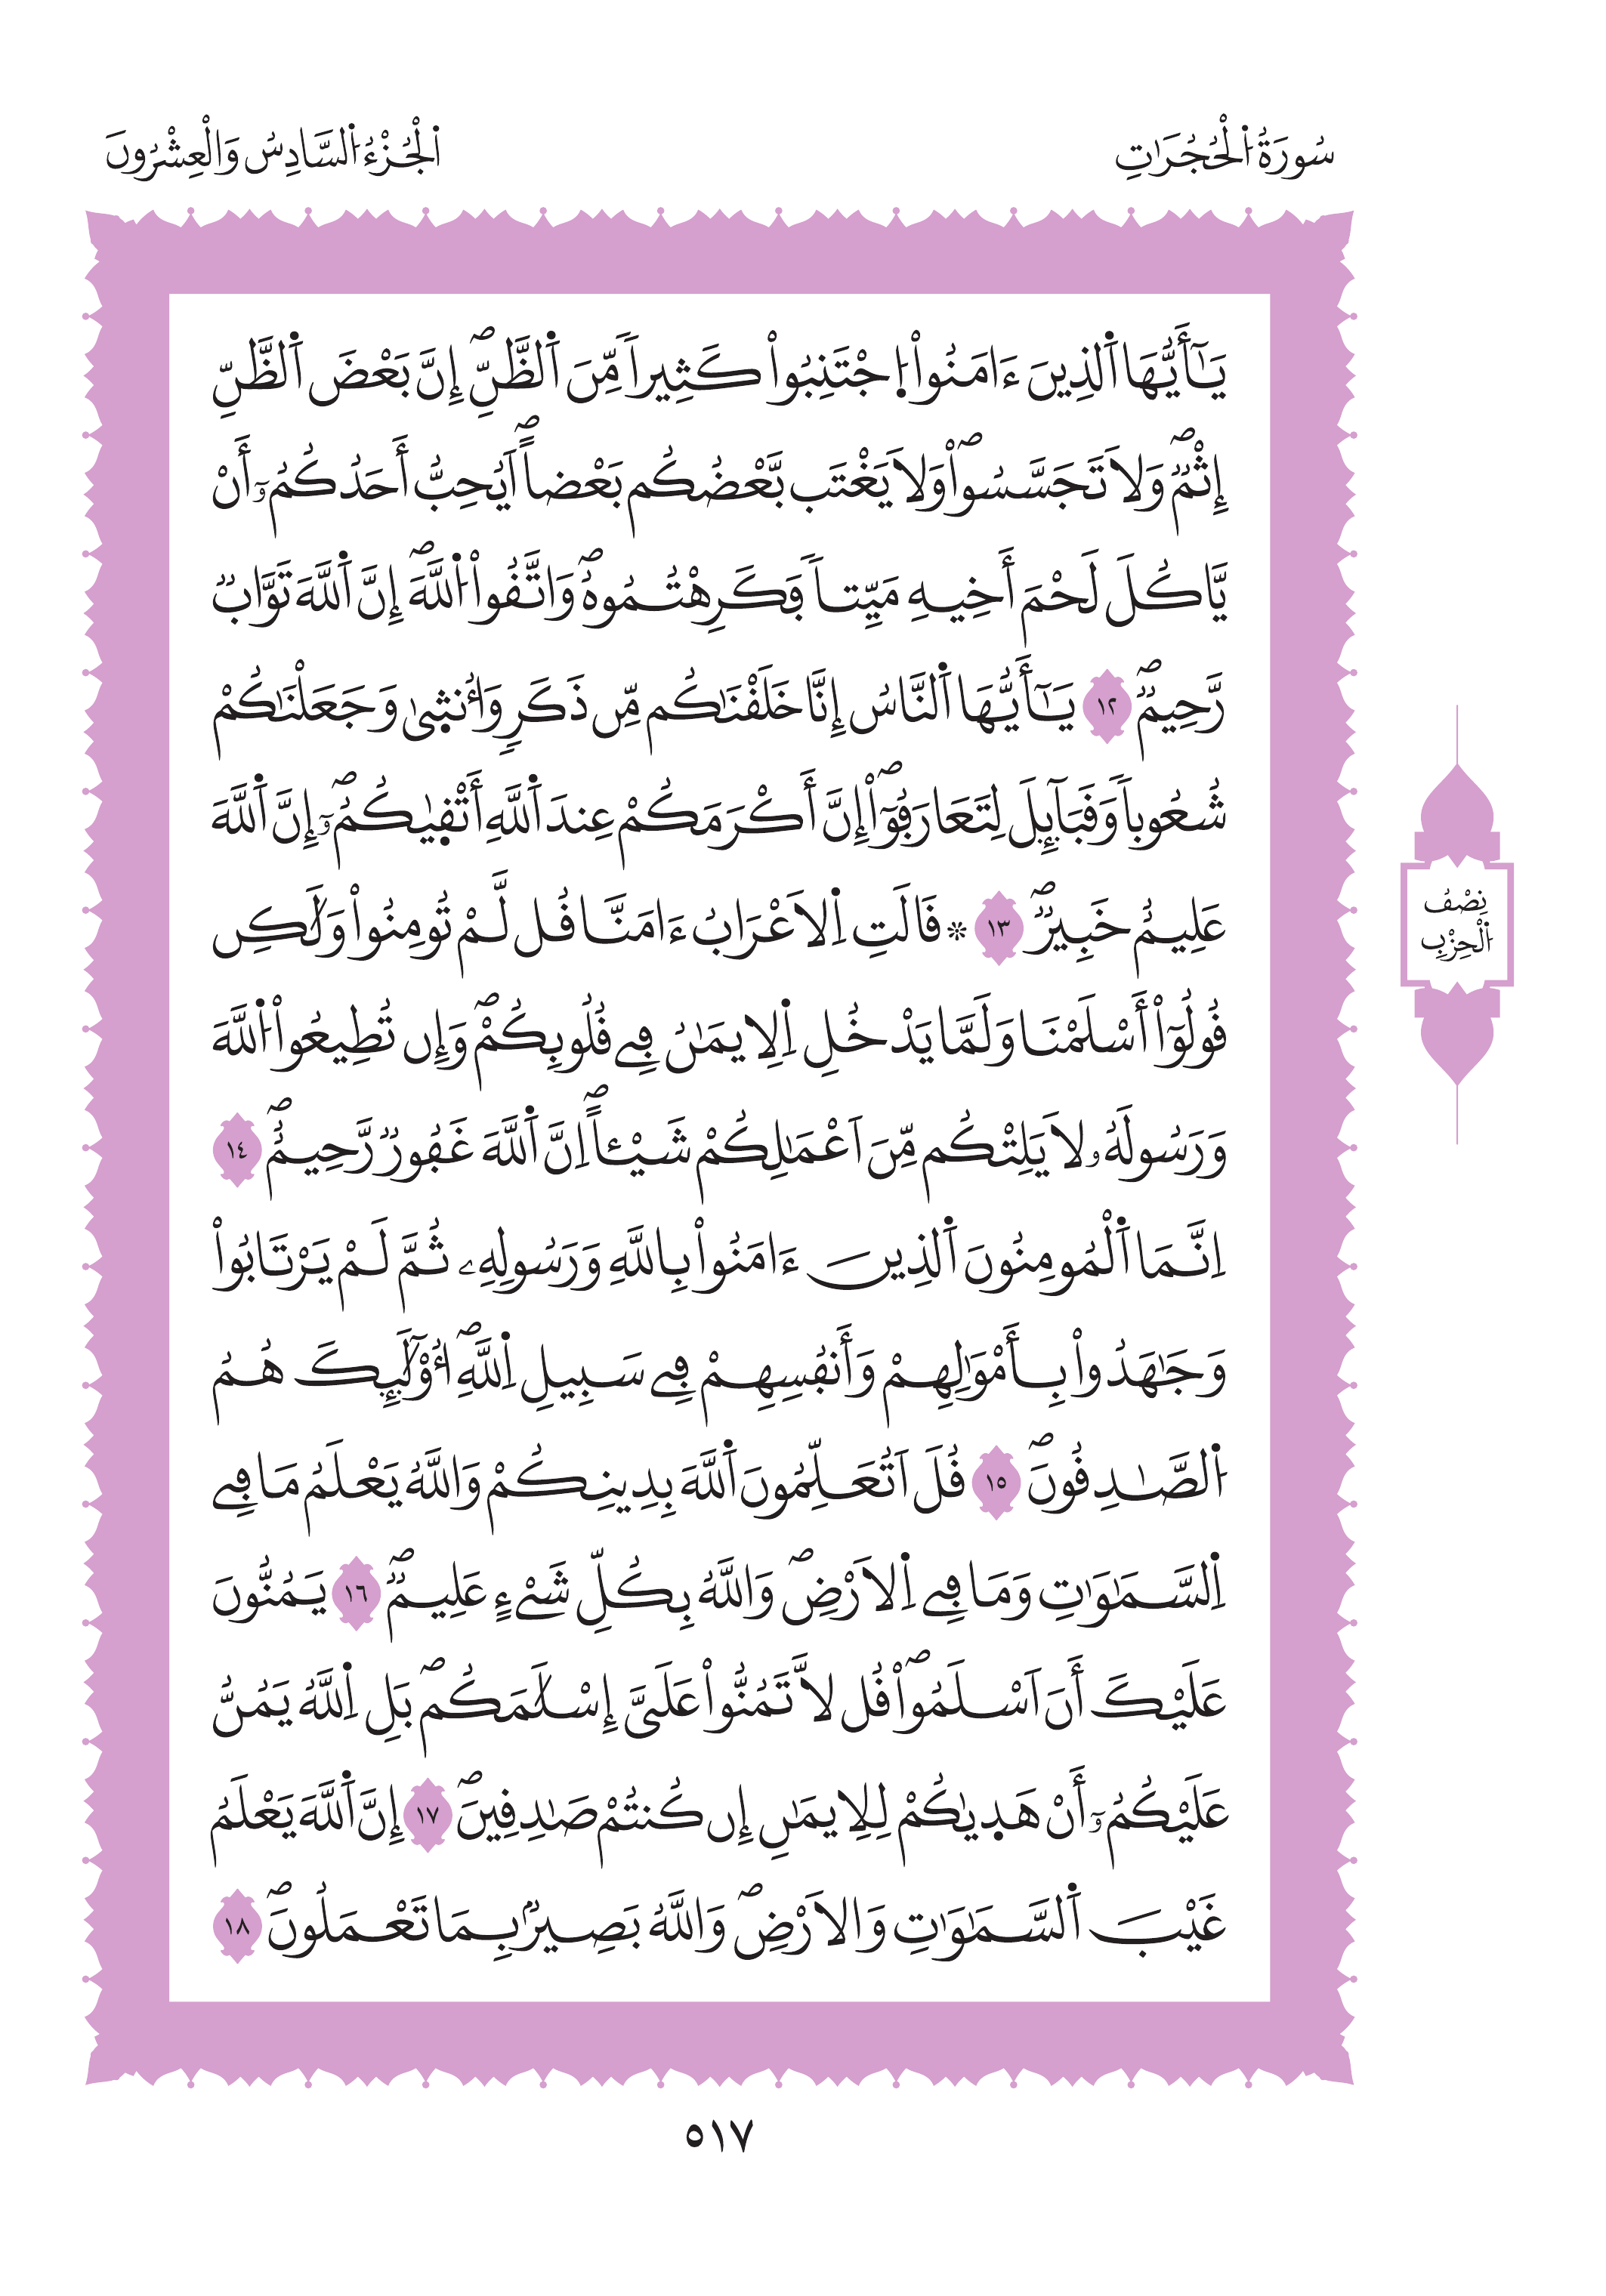 سُورَةُ اُ۬لْحُجُرَٰتِ
اَ۬لْجُزْءُ اُ۬لسَّادِسُ وَالْعِشْرُونَ
يَٰٓأَيُّهَا اَ۬لذِينَ ءَامَنُواْ اُ۪جْتَنِبُواْ كَثِيراٗ مِّنَ اَ۬لظَّنِّۖ إِنَّ بَعْضَ اَ۬لظَّنِّ
إِثْمٞۖ وَلَا تَجَسَّسُواْۖ وَلَا يَغْتَب بَّعْضُكُم بَعْضاًۖ اَيُحِبُّ أَحَدُكُمُۥٓ أَنْ
يَّاكُلَ لَحْمَ أَخِيهِ مَيِّتاٗ فَكَرِهْتُمُوهُۖ وَاتَّقُواْ اُ۬للَّهَۖ إِنَّ اَ۬للَّهَ تَوَّابٞ
رَّحِيمٞۖ ١٢ يَٰٓأَيُّهَا اَ۬لنَّاسُ إِنَّا خَلَقْنَٰكُم مِّن ذَكَرٖ وَأُنث۪يٰ وَجَعَلْنَٰكُمْ
شُعُوباٗ وَقَبَآئِلَ لِتَعَارَفُوٓاْۖ إِنَّ أَكْرَمَكُمْ عِندَ اَ۬للَّهِ أَتْق۪يٰكُمُۥٓۖ إِنَّ اَ۬للَّهَ
عَلِيمٌ خَبِيرٞۖ ١٣ ۞ قَالَتِ اِ۬لَاعْرَابُ ءَامَنَّا قُل لَّمْ تُومِنُواْ وَلَٰكِن
قُولُوٓاْ أَسْلَمْنَا وَلَمَّا يَدْخُلِ اِ۬لِايمَٰنُ فِے قُلُوبِكُمْۖ وَإِن تُطِيعُواْ اُ۬للَّهَ
وَرَسُولَهُۥ لَا يَلِتْكُم مِّنَ اَعْمَٰلِكُمْ شَيْـٔاًۖ اِنَّ اَ۬للَّهَ غَفُورٞ رَّحِيمٌۖ ١٤
اِنَّمَا اَ۬لْمُومِنُونَ اَ۬لذِينَ ءَامَنُواْ بِاللَّهِ وَرَسُولِهِۦ ثُمَّ لَمْ يَرْتَابُواْ
وَجَٰهَدُواْ بِأَمْوَٰلِهِمْ وَأَنفُسِهِمْ فِے سَبِيلِ اِ۬للَّهِۖ أُوْلَٰٓئِكَ هُمُ
اُ۬لصَّٰدِقُونَۖ ١٥ قُلَ اَتُعَلِّمُونَ اَ۬للَّهَ بِدِينِكُمْ وَاللَّهُ يَعْلَمُ مَا فِے
اِ۬لسَّمَٰوَٰتِ وَمَا فِے اِ۬لَارْضِۖ وَاللَّهُ بِكُلِّ شَےْءٍ عَلِيمٞۖ ١٦ يَمُنُّونَ
عَلَيْكَ أَنَ اَسْلَمُواْۖ قُل لَّا تَمُنُّواْ عَلَيَّ إِسْلَٰمَكُمۖ بَلِ اِ۬للَّهُ يَمُنُّ
عَلَيْكُمُۥٓ أَنْ هَد۪يٰكُمْ لِلِايمَٰنِ إِن كُنتُمْ صَٰدِقِينَۖ ١٧ إِنَّ اَ۬للَّهَ يَعْلَمُ
غَيْبَ اَ۬لسَّمَٰوَٰتِ وَالَارْضِۖ وَاللَّهُ بَصِيرُۢ بِمَا تَعْمَلُونَۖ ١٨
نِصْفُ
اُ۬لْحِزْبِ
٥١٧